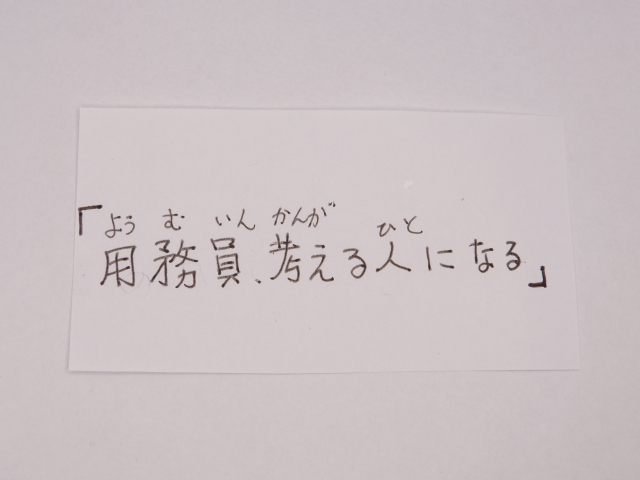 よう む いん かんが ひと
「用務員、考える人になる」